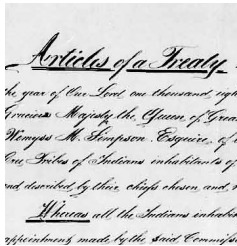 Articles of a Treaty
the year of Our Lord one thousand, eigh
Gracious Majesty the Queen of Grea
Wemyss M. Simpson. Esquire, of
Cree Tribes of Indians inhabitants of
and described by their chiefs chosen and,
Whereas all the Indians inhabi
appointment made by the said Commiss